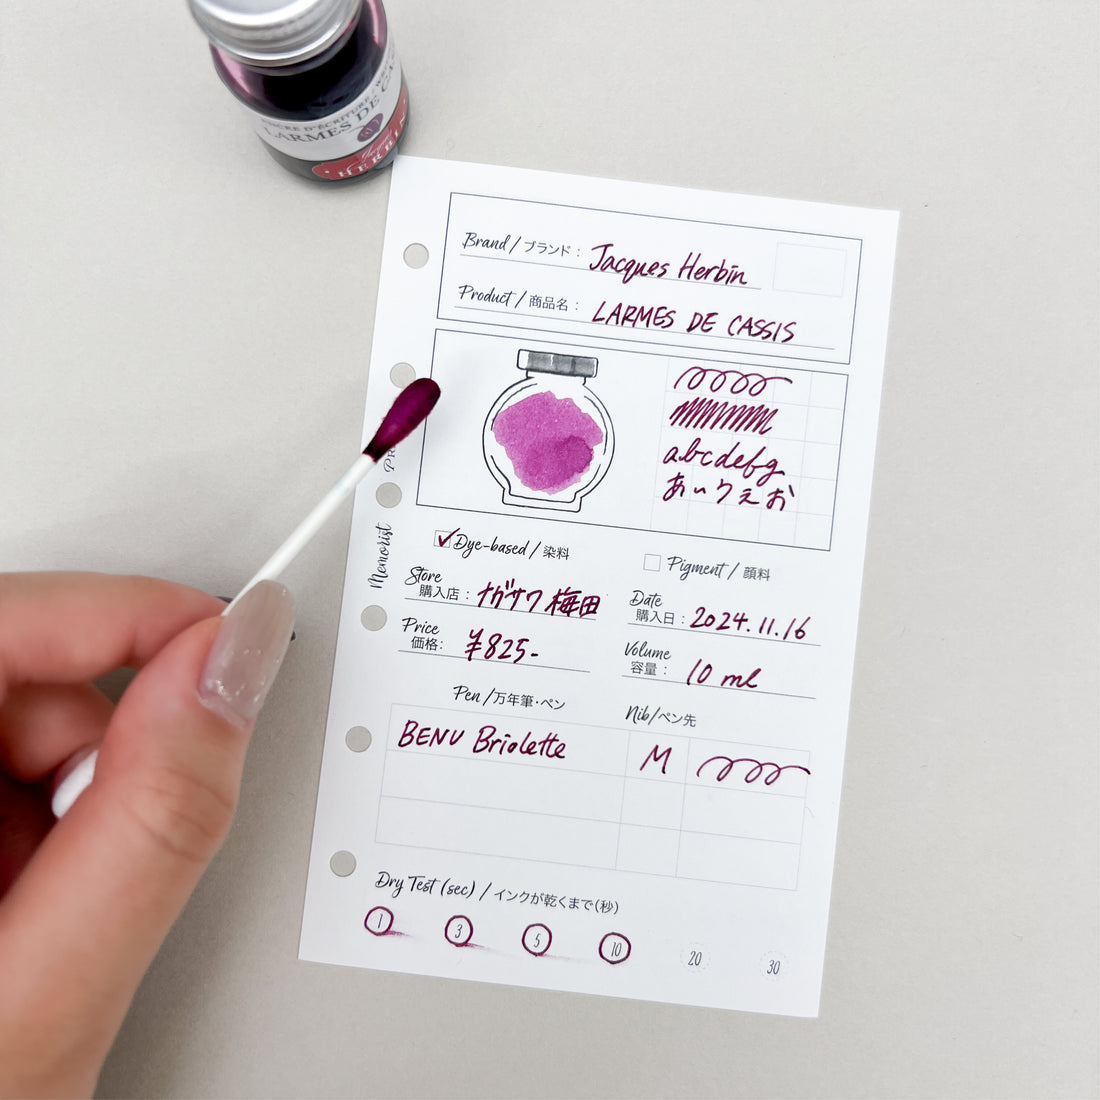 LARMES DE
HERBIN
Brand / ブランド : Jacques Herbin
Product / 商品名 : LARMES DE CASSIS
abcdefg
あいうえお
Dye-based / 染料
Pigment / 顔料
Store
購入店 : ナガサワ 梅田
Date
購入日 : 2024.11.16
Price
価格: ¥825-
Volume
容量 : 10 ml
Pen / 万年筆・ペン
Nib/ペン先
BENU Briolette M
Dry Test (sec) / インクが乾くまで(秒)
1 3 5 10 20 30
Memorist